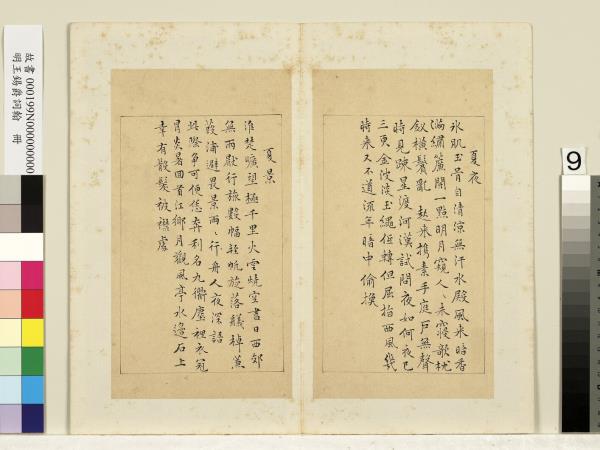 夏夜
冰肌玉骨自清涼無汗水殿風來暗香
滿繡簾開一點明月窺人〻未寢欹枕
釵橫鬢亂 起來攜素手庭戶無聲
時見踈星渡河漢試問夜如何夜已
三更金波淡玉繩低轉但屈指西風幾
時來又不道流年暗中偷換
夏景
淮楚曠望極千里火雲燒空盡日西郊
無雨厭行旅數幅輕帆旋落艤棹蒹
葭浦避畏景兩〻行舟人夜深語
此際爭可便恁奔利名九衢塵裡衣冠
冒炎暑回首江鄉月觀風亭水邊石上
幸有散髮披襟處
故書 000199N000000000
明王錫爵詞翰 冊
9